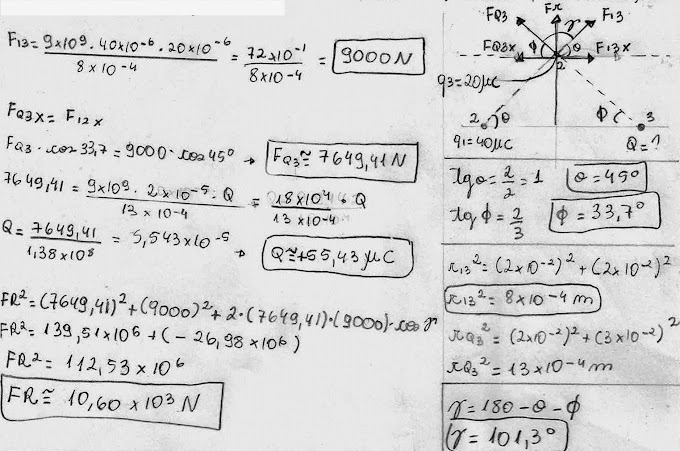 F13 = 9x10⁹ . 40x10⁻⁶ . 20x10⁻⁶ / 8x10⁻⁴ = 72x10⁻¹ / 8x10⁻⁴ = 9000N
FQ3x = F12x
FQ3 . cos 33,7 = 9000 . cos 45º → FQ3 ≅ 7649,41N
7649,41 = 9x10⁹ . 2x10⁻⁵ . Q / 13x10⁻⁴ = 18x10⁴ . Q / 13x10⁻⁴
Q = 7649,41 / 1,38x10⁸ = 5,543x10⁻⁵ → Q ≅ +55,43 μC
FR² = (7649,41)² + (9000)² + 2.(7649,41).(9000).cos γ
FR² = 139,51x10⁶ + (-26,98x10⁶)
FR² = 112,53x10⁶
FR ≅ 10,60x10³N
FR
FQ3 γ F13
FQ3x φ θ F13x
2
q3=20μC
2 θ φ 3
q1=40μC Q=?
tgθ = 2/2 = 1 θ = 45º
tgφ = 2/3 φ = 33,7º
r13² = (2x10⁻²)² + (2x10⁻²)²
r13² = 8x10⁻⁴ m
rQ3² = (2x10⁻²)² + (3x10⁻²)²
rQ3² = 13x10⁻⁴ m
γ = 180 - θ - φ
γ = 101,3º